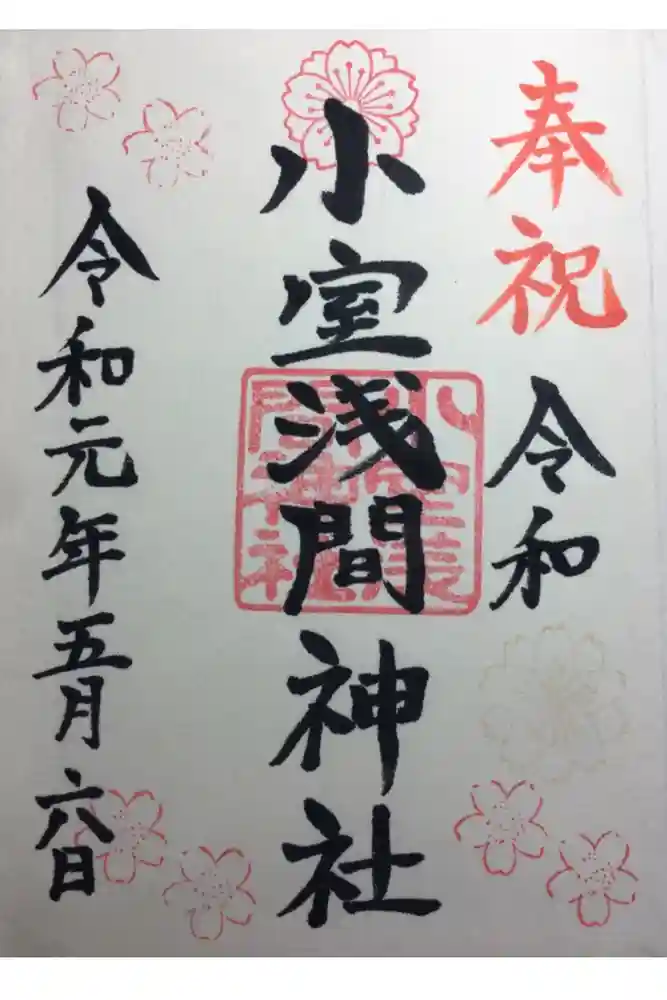 奉祝 令和
小室浅間神社
令和元年五月六日